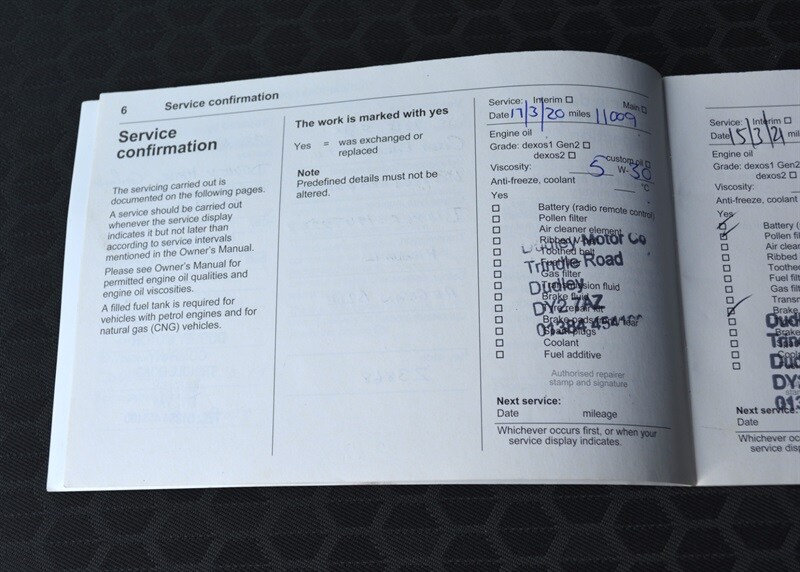 6 Service confirmation
Service
confirmation
The servicing carried out is
documented on the following pages.
A service should be carried out
whenever the service display
indicates it but not later than
according to service intervals
mentioned in the Owner's Manual.
Please see Owner's Manual for
permitted engine oil qualities and
engine oil viscosities.
A filled fuel tank is required for
vehicles with petrol engines and for
natural gas (CNG) vehicles.
The work is marked with yes
Yes = was exchanged or
replaced
Note
Predefined details must not be
altered.
Service: Interim Main
Date 17/3/20 miles 11009
Engine oil
Grade: dexos1 Gen2
dexos2 custom oil
Viscosity: 5 W-30
Anti-freeze, coolant °C
Yes
Battery (radio remote control)
Pollen filter
Air cleaner element
Ribbed
Toothed belt
Gas filter
Transmission fluid
Brake fluid
Brake pads
Spark plugs
Coolant
Fuel additive
Dudley Motor Co
Trindle Road
Dudley
DY2 7AZ
01384
Authorised repairer
stamp and signature
Next service:
Date mileage
Whichever occurs first, or when your
service display indicates.
Service: Interim
Date 15/3/21 mil
Engine oil
Grade: dexos1 Gen2
dexos2
Viscosity:
Anti-freeze, coolant
Yes
Battery (
Pollen fil
Air clea
Ribbed
Toothe
Fuel filt
Gas filt
Transm
Brake
Dud
Trin
Dud
DY
013
Next service:
Date
Whichever oc
service disp